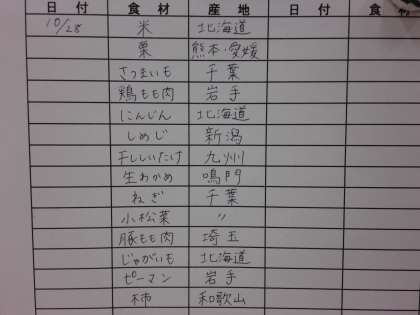 日付 食材 産地 日付 食材
10/28 米 北海道
栗 熊本・愛媛
さつまいも 千葉
鶏もも肉 岩手
にんじん 北海道
しめじ 新潟
干ししいたけ 九州
生わかめ 鳴門
ねぎ 千葉
小松菜 〃
豚もも肉 埼玉
じゃがいも 北海道
ピーマン 岩手
柿 和歌山